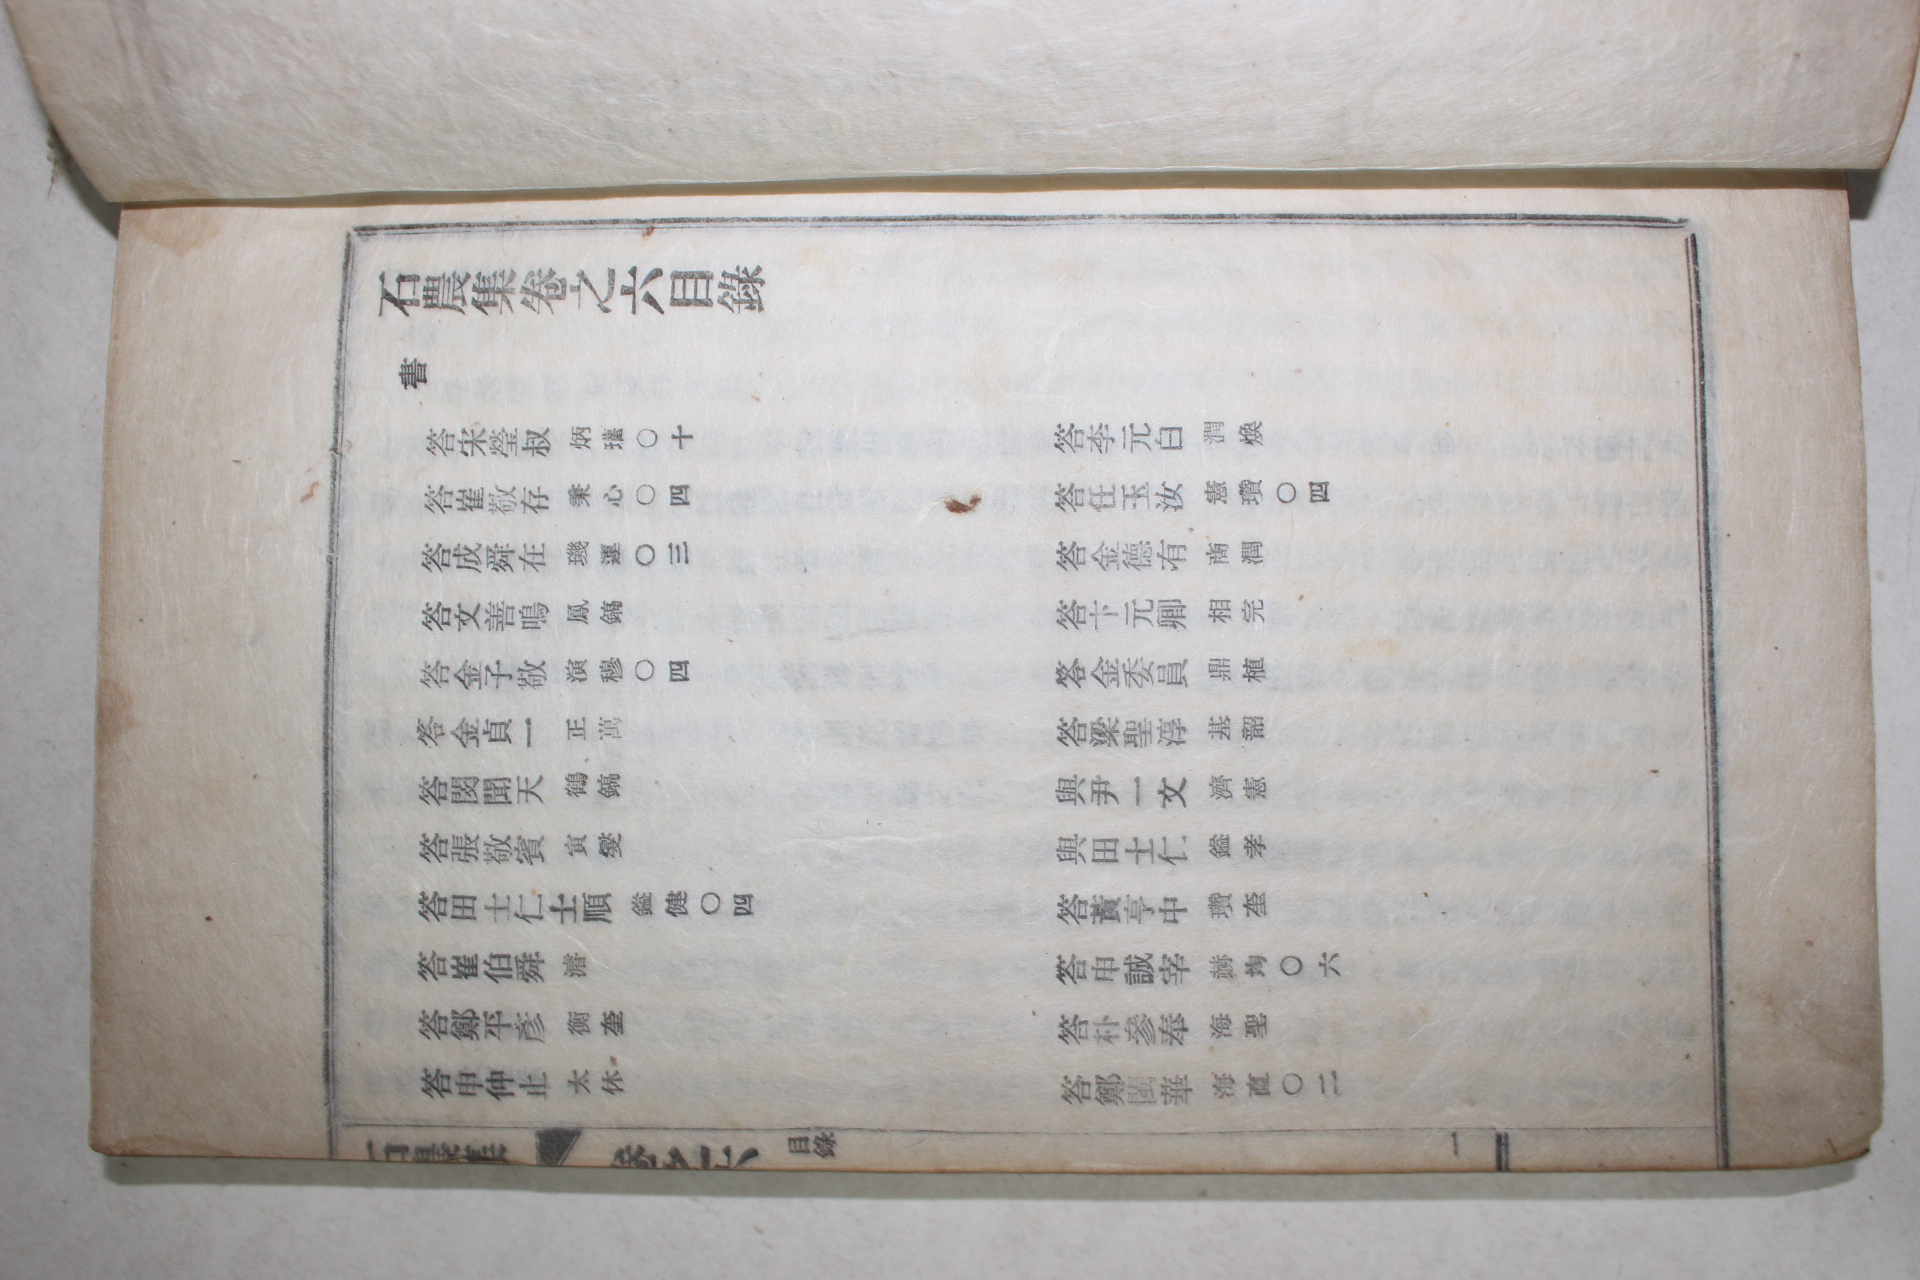 石農集卷之六目錄
書
答宋瑩叔 炳瓘〇十
答李元白 潤煥
答崔敬存 秉心〇四
答任玉汝 憲瓚〇四
答成舜在 璣運〇三
答金德有 商潤
答文善鳴 鳳鎬
答卞元卿 相完
答金子敬 演穆〇四
答金委員 鼎植
答金貞一 正萬
答梁聖淳 基韶
答閔聞天 鶴鎬
與尹一文 濟憲
答張敬賓 寅燮
與田士仁 鎰孝
答田士仁士順 鎰健〇四
答黃亨中 瓚奎
答崔伯舜 濬
答申誠宰 赫均〇六
答鄭平彥 衡奎
答朴參奉 海聖
答申仲止 太休
答鄭閨華 海直〇二
石農集 卷之六 目錄 一